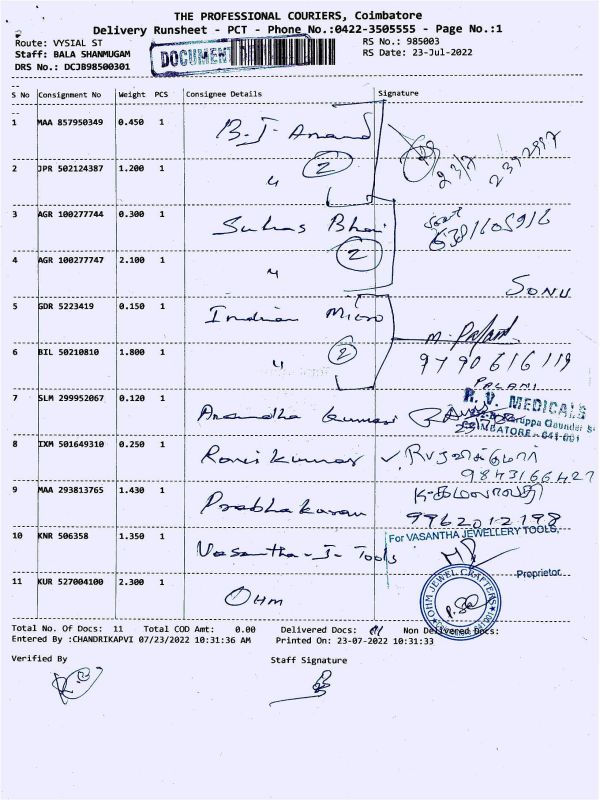 THE PROFESSIONAL COURIERS, Coimbatore
Delivery Runsheet - PCT - Phone No.:0422-3505555 - Page No.:1
Route: VYSIAL ST RS No.: 985003
Staff: BALA SHANMUGAM RS Date: 23-Jul-2022
DRS No.: DCJB98500301
DOCUMENT
S No Consignment No Weight PCS Consignee Details Signature
1 MAA 857950349 0.450 1 B.J. Anand
2 JPR 502124387 1.200 1 " 2 23/7
3 AGR 100277744 0.300 1 Suhas Bhai 6381605916
4 AGR 100277747 2.100 1 " 2 SONU
5 GDR 5223419 0.150 1 Indian Micro
6 BIL 50210810 1.800 1 " 2 9790616119
PALANI
7 SLM 299952067 0.120 1 Anandha Kumar R. V. MEDICALS
COIMBATORE - 641 001
8 IXM 501649310 0.250 1 Ravi Kumar
9843166427
9 MAA 293813765 1.430 1 Prabhakaran
9962012198
10 KNR 506358 1.350 1 Vasantha-J-Tools For VASANTHA JEWELLERY TOOLS,
Proprietor
11 KUR 527004100 2.300 1 OHM OHM JEWEL CRAFTERS
Total No. Of Docs: 11 Total COD Amt: 0.00 Delivered Docs: 11 Non Delivered Docs:
Entered By :CHANDRIKAPVI 07/23/2022 10:31:36 AM Printed On: 23-07-2022 10:31:33
Verified By Staff Signature